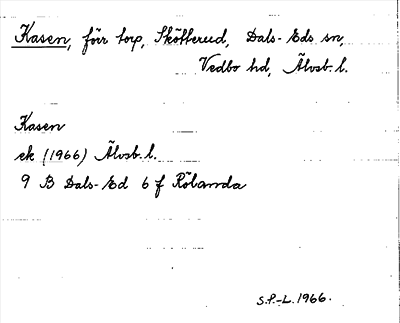 Kasen, förr torp, Skötterud, Dals-Eds sn,
Vedbo hd, Älvsb. l.
Kasen
ek (1966) Älvsb. l.
9 B Dals-Ed 6 f Röbanda
S.P.-L. 1966.